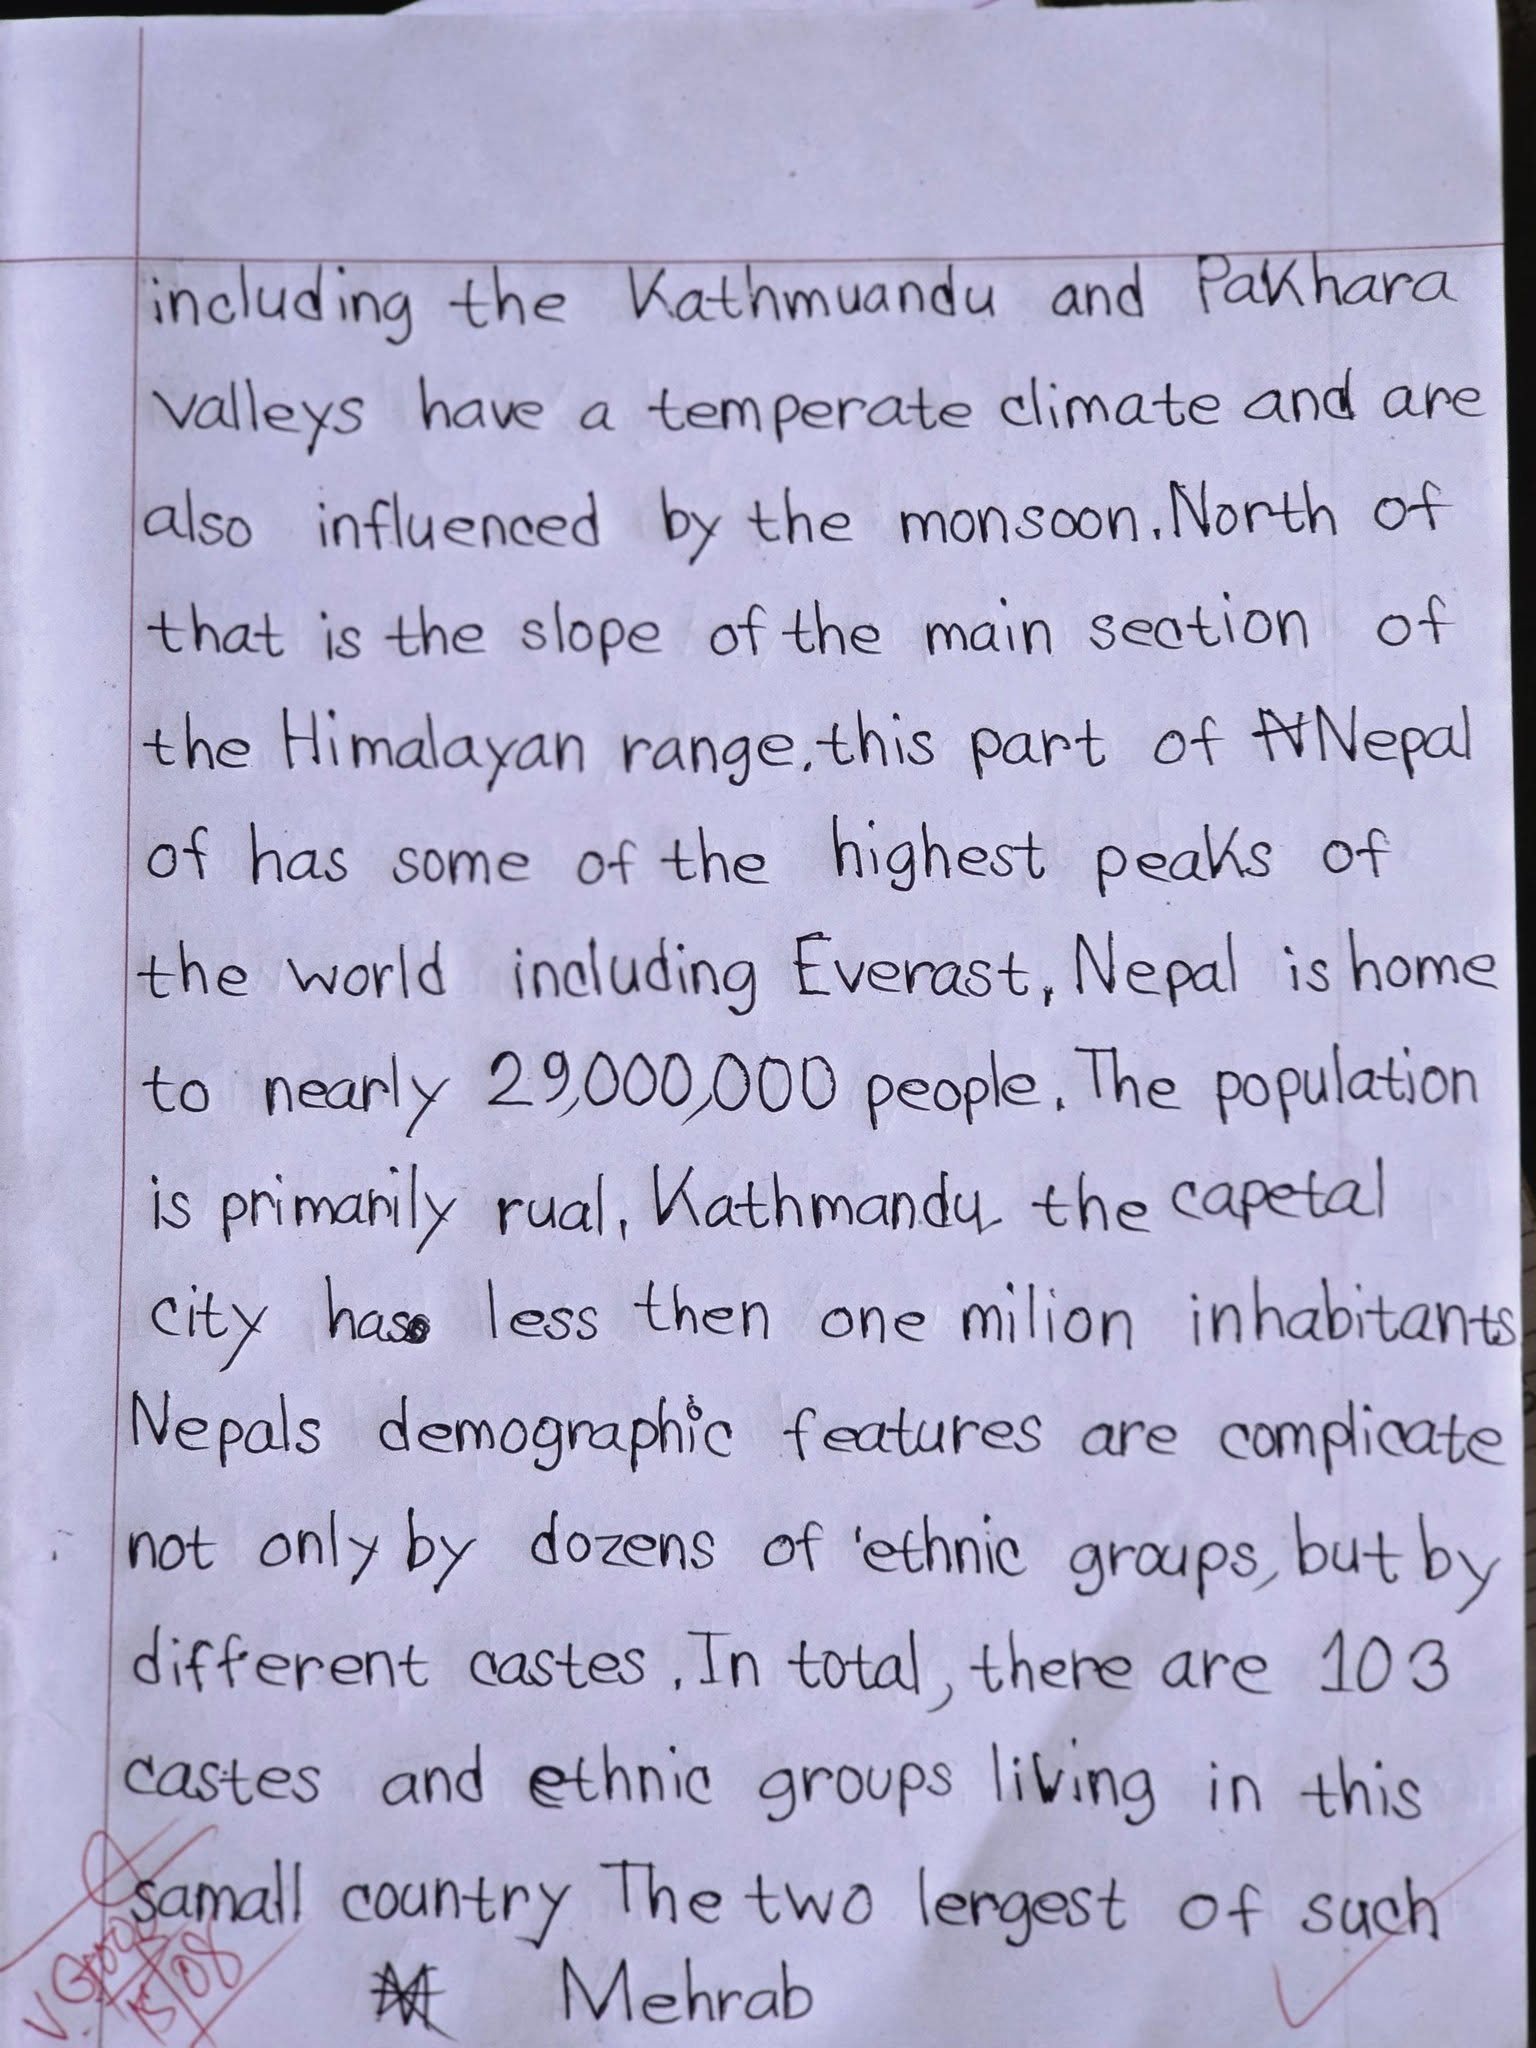 including the Kathmuandu and Pakhara
valleys have a temperate climate and are
also influenced by the monsoon. North of
that is the slope of the main section of
the Himalayan range. this part of Nepal
of has some of the highest peaks of
the world including Everast, Nepal is home
to nearly 29,000,000 people. The population
is primarily rual, Kathmandu the capetal
city has less then one milion inhabitants
Nepals demographic features are complicate
not only by dozens of 'ethnic groups, but by
different castes. In total, there are 103
castes and ethnic groups living in this
samall country The two lergest of such
Mehrab
V. Good
15/08